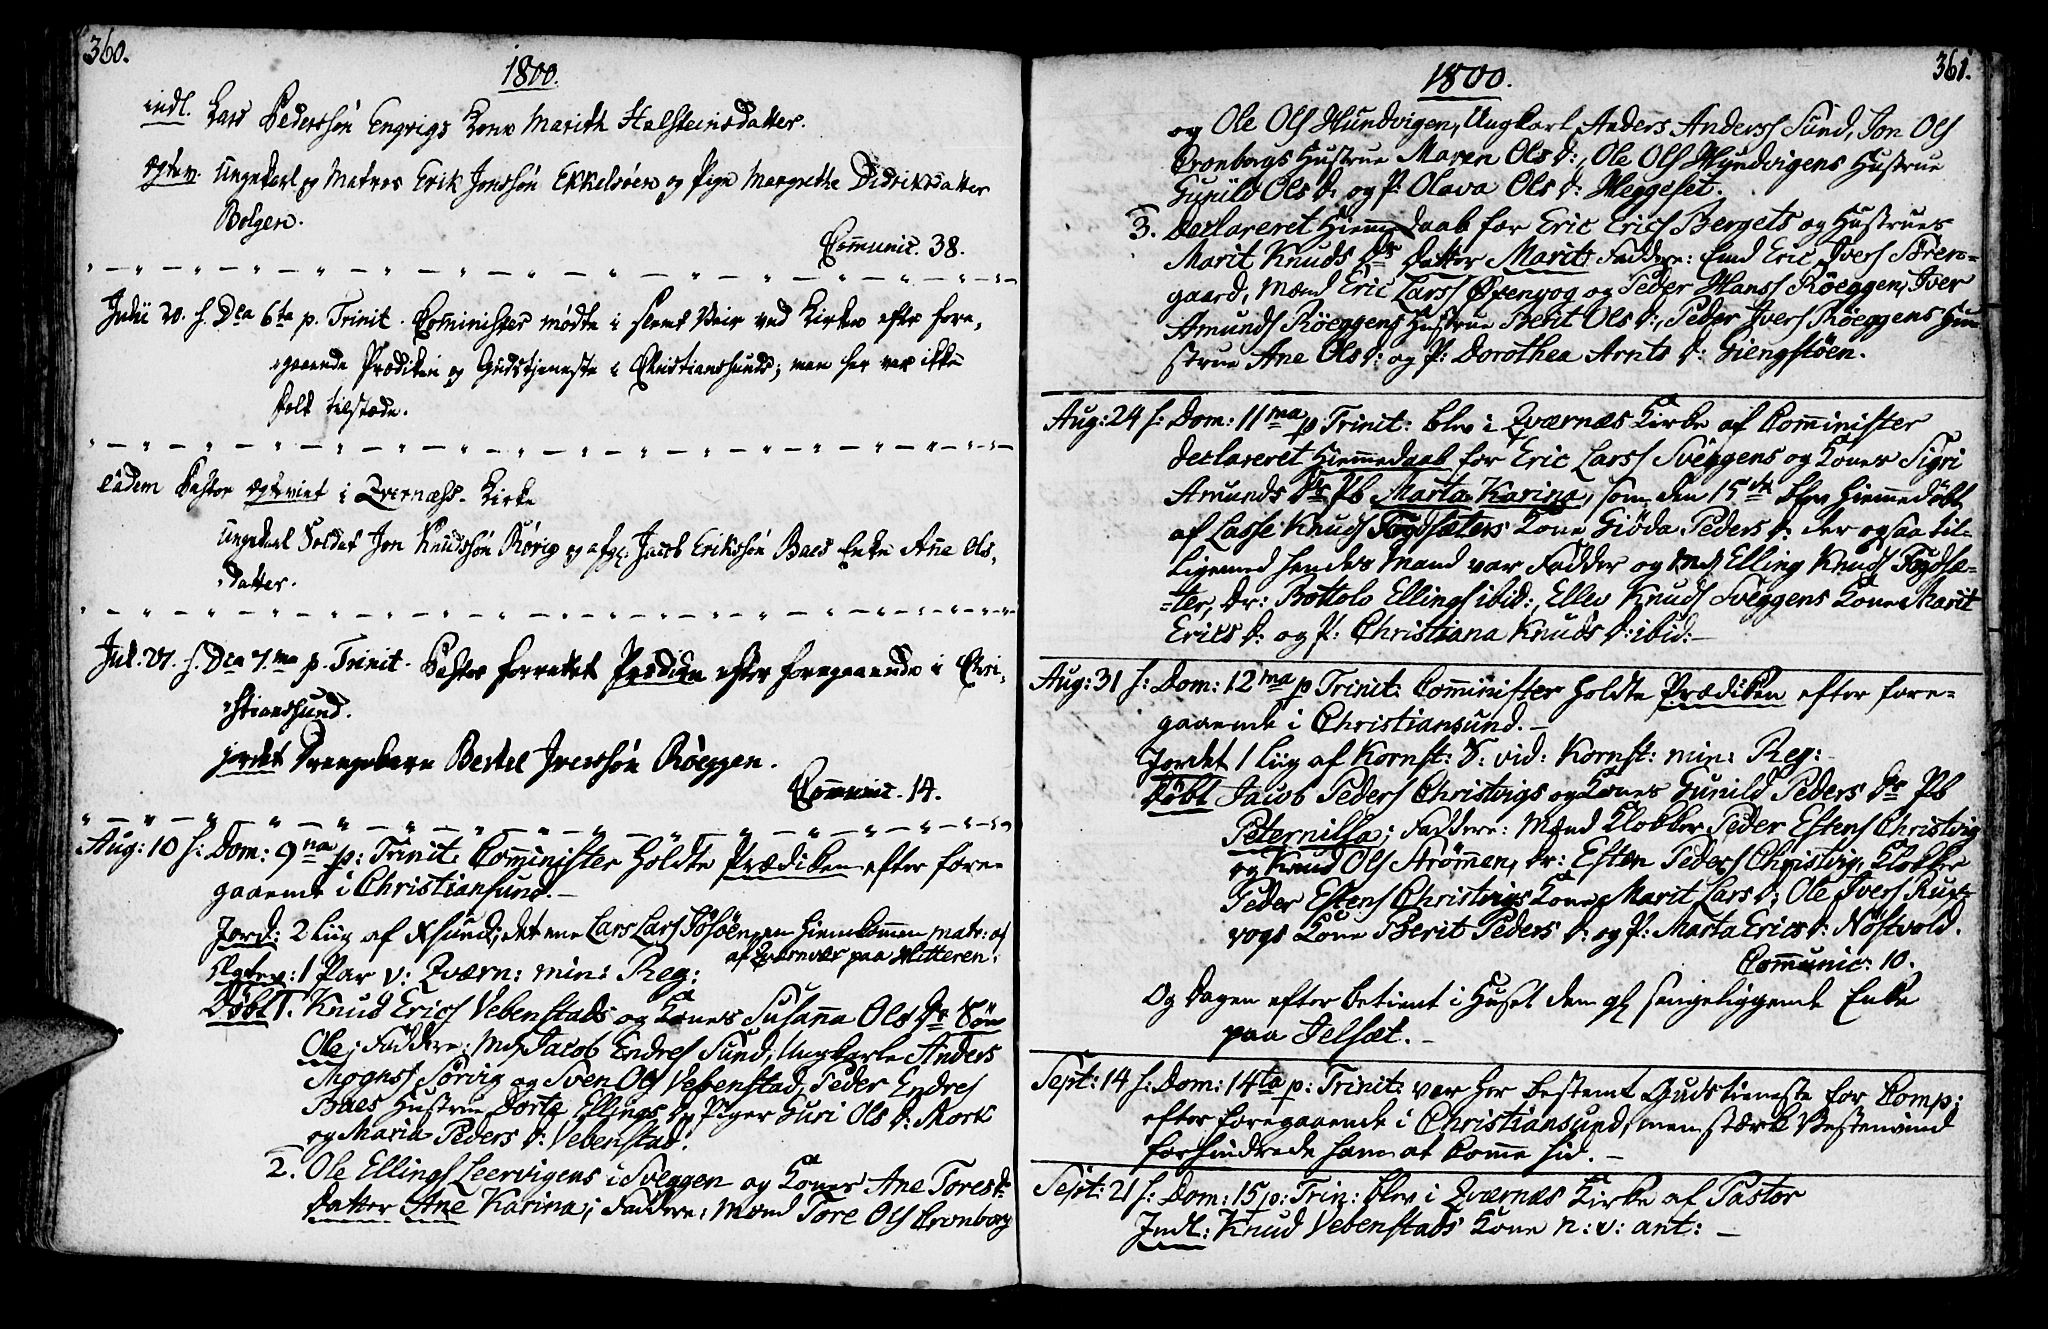 360.
1800.
indl. Lars Pederssön Engvigs Kone Marith Halsteinsdatter.
Ægtev. Ungekarl og Matros Erik Jonssön Ekkelsöen og Pige Margrethe Didriksdatter
Bolgen.
Communic. 38.
Julii 20. s. Dca 6ta p. Trinit. Cominister mødte i slemt Veir ved Kirken efter fore-
gaaende Prædiken og Gudstjeneste i Christianssunds; men her var ikke
folk tilstæde.
eadem Pastor ægteviet i Qvernæhs Kirke
Ungekarl Soldat Jon Knudssön Rörvig og afgl. Jacob Erikssön Baes Enke Ane Ols-
datter.
Jul: 27. s. Dca 7.ma p. Trinit. Pastor forrettet Prædiken efter foregaaende i Chri-
stianssund.
jordet Drengebarn Bertel Iverssön Röeggen.
Communic. 14.
Aug: 10 s: Dom: 9na p: Trinit: Cominister holdte Prædiken efter fore-
gaaende i Christiansund.-
Jord: 2 Liig af Xsund; det ene Lars Lars en hiemkommen matr: af
af paa Hitteren.
Ægtev: 1 Par v: Qværn: min: Reg:
Døbt 1. Knud Erics Vebenstads og Kones Susanna Ols Dr Søn
Ole; Faddere: Md Jacob Endres Sund, Ungkarle Anders
Mogns Sörvig og Sven Ols Vebenstad, Peder Endres
Baes Hustrue Dorte Ellings Dr Piger Guri Ols D: Mork
og Maria Peders D: Vebenstad.
2. Ole Ellings Leervigens i Sveggen og Kones Ane Tores D:
Datter Ane Karina; Faddere: Mænd Tore Ols Cronborg
361.
1800.
og Ole Ols Hundvigen, Ungkarl Anders Anders Sund, Jon Ols
Cronborgs Hustrue Maren Ols D:, Ole Ols Hundvigens Hustrue
Gunild Ols D: og P: Olava Ols D: Heggeset.
3. Declareret Hiemedaab for Eric Erics Bergets og Hustrues
Marit Knuds Dr Datter Marit; Faddere: Eric Ivers Stren-
gaard, Mænd Eric Lars Øxenvog og Peder Hans Röeggen, Iver
Amunds Röeggens Hustrue Berit Ols D:, Peder Ivers Röeggens Hu-
strue Ane Ols D: og P: Dorothea Arnts D: Giengstöen.
Aug: 24 s: Dom: 11ma p Trinit: blev i Qværnæs Kirke af Cominister
declareret Hiemmedaab for Eric Lars Sveggens og Kones Sigri
Amunds Dr Pb Marta Karina, som den 15de blev hiemmedøbt
af Lasse Knuds Fogdsæters Kone Giöda Peders D: der ogsaa til-
ligemed hendes Mand var Fadder og Md Elling Knuds Fogdsæ-
ter, Dr: Bottolv Ellings ibid:, Ellev Knuds Sveggens Kone Marit
Erics D: og P: Christiana Knuds D: ibid:-
Aug: 31 s: Dom: 12ma p Trinit: Cominister holdte Prædiken efter fore-
gaaende i Christiansund.-
Jordet 1 Liig af Kornst: S: vid: Kornst: min: Reg:
Døbt Jacob Peders Christvigs og Kones Gunild Peders Dr Pb
Peternilla; Faddere: Mænd Klokker Peder Estens Christvig
og Knud Ols Strömmen, Dr: Esten Peders Christvig, Klokker
Peder Estens Christvigs Kone Marit Lars D: Ole Ivers
vogs Kone Berit Peders D: og P: Marta Erics D: Nöstvold.
Communic: 10.
Og Dagen efter betient i Huset den gl. sengeliggende Enke
paa Jelsæt.-
Sept: 14 s: Dom: 14ta p: Trinit: var her bestemt Gudstieneste for Comp:
efter foregaaende i Christiansund, men stærk Vestenvind
forhindrede ham at komme hid.-
Sept: 21 s: Dom: 15 p: Trin: blev i Qværnæs Kirke af Pastor
Indl: Knud Vebenstads Kone n: v: ant:-